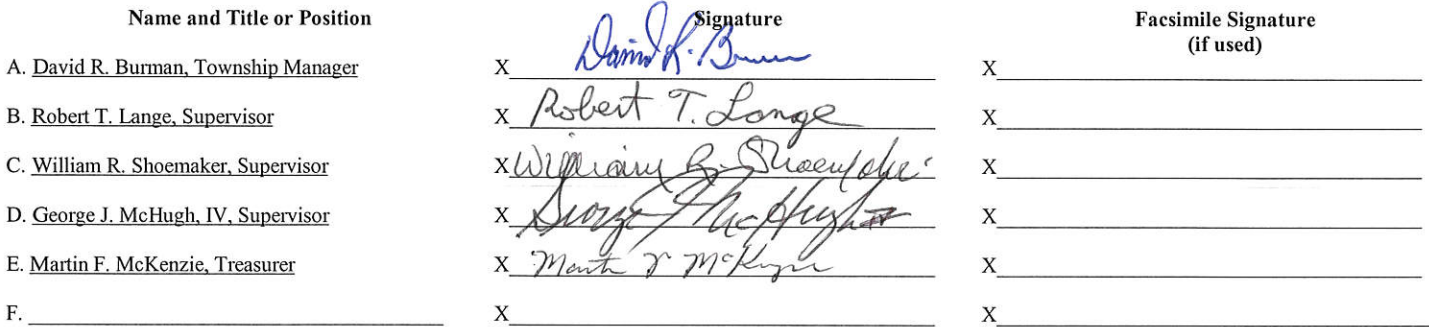 Name and Title or Position Signature Facsimile Signature
(if used)
A. David R. Burman, Township Manager X David R. Burman X
B. Robert T. Lange, Supervisor X Robert T. Lange X
C. William R. Shoemaker, Supervisor X William R. Shoemaker X
D. George J. McHugh, IV, Supervisor X George J McHugh IV X
E. Martin F. McKenzie, Treasurer X Martin F McKenzie X
F. X X